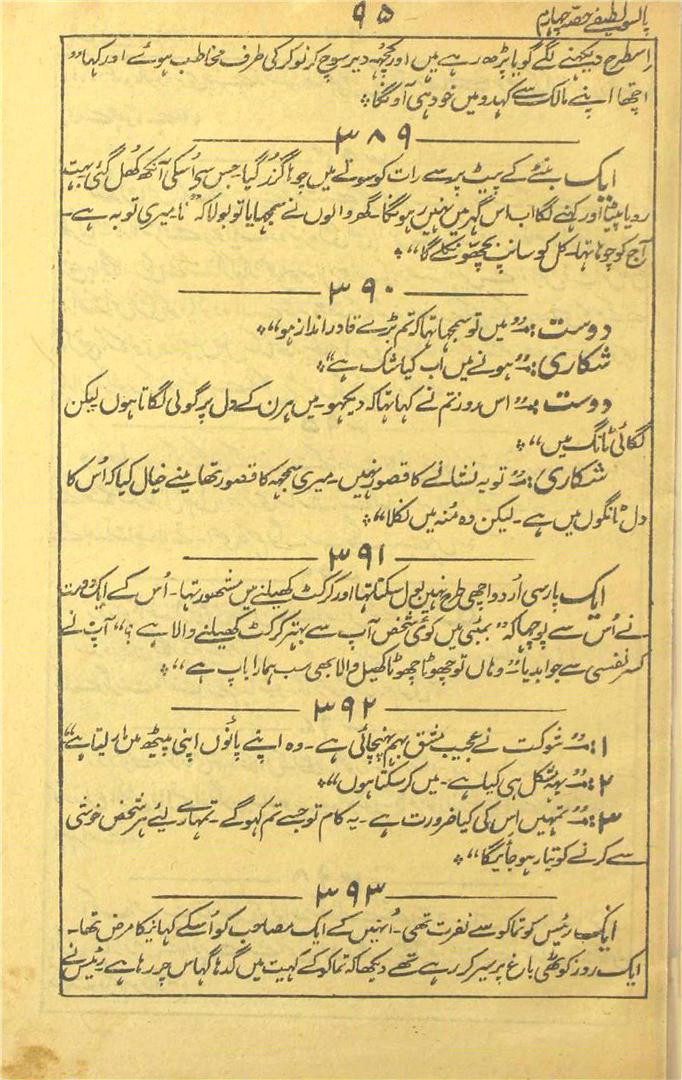 پانسو لطیفے حصہ چہارم
۹۵
اسطرح دیکھنے لگے گویا پڑھ رہے ہیں اور کچھہ دیر سوچ کر نوکر کی طرف مخاطب ہوئے اور کہا "
اچھا اپنے مالک سے کہدو میں خود ہی آونگا ❖
۳۸۹
ایک بنئے کے پیٹ پر سے رات کو سوتے میں چوہا گزر گیا۔ جس سے اُسکی آنکھ کھل گئی بہت
رویا پیٹا اور کہنے لگا اب اس گہر میں نہیں رہونگا۔ گھر والوں نے سمجہایا تو بولا کہ " نا میری توبہ ہے۔
آج کو چوہا تہا۔ کل کو سانپ بچھو نکلے گا " ❖
۳۹۰
دوست :۔ " میں تو سمجہا تہا کہ تم بڑے قادر انداز ہو " ❖
شکاری :۔ " ہونے میں اب کیا شک ہے " ❖
دوست :۔ " اس روز تم نے کہا تہا کہ دیکہو۔ میں ہرن کے دل پر گولی لگاتا ہوں لیکن
لگائی ٹانگ میں " ❖
شکاری :۔ " تو یہ نشانے کا قصور نہیں۔ میری سمجہہ کا قصور تھا مینے خیال کیا کہ اُس کا
دل ٹانگوں میں ہے۔ لیکن وہ مُنہ میں نکلا " ❖
۳۹۱
ایک پارسی اُردو اچھی طرح نہیں بول سکتا تہا اور کرکٹ کھیلنے میں مشہور تہا۔ اُس کے ایک دوست
نے اُس سے پوچہا کہ " بمبئی میں کوئی شخص آپ سے بہتر کرکٹ کھیلنے والا ہے ؟ " آپ نے
کسر نفسی سے جواب دیا :۔ " وہاں تو چھوٹا چھوٹا کھیل والا بھی سب ہمارا باپ ہے " ❖
۳۹۲
۱ :۔ " شوکت نے عجیب مشق بہم پہنچائی ہے۔ وہ اپنے پانوں اپنی پیٹھ میں مار لیتا ہے "
۲ :۔ " یہہ مشکل ہی کیا ہے۔ میں کر سکتا ہوں " ❖
۳ :۔ " تمہیں اس کی کیا ضرورت ہے۔ یہ کام تو جسے تم کہو گے۔ تمہارے لیئے ہر شخص خوشی
سے کرنے کو تیار ہو جائیگا " ❖
۳۹۳
ایک رئیس کو تماکو سے نفرت تھی۔ اُنہیں کے ایک مصاحب کو اُسکے کہانیکا مرض تھا۔
ایک روز کوٹھی باغ پر سیر کر رہے تھے دیکھا کہ تماکو کے کہیت میں گدہا گہاس چر رہا ہے رئیس نے